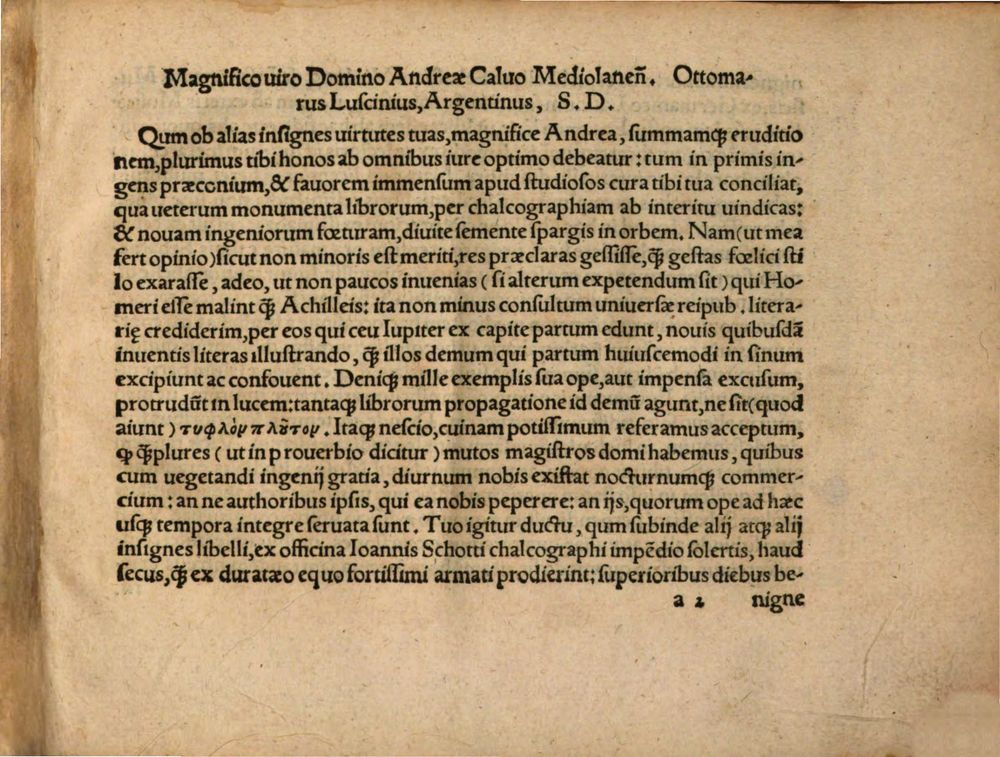 Magnifico uiro Domino Andreæ Caluo Mediolaneñ. Ottoma-
rus Luſcinius, Argentinus, S. D.
Qum ob alias inſignes uirtutes tuas, magnifice Andrea, ſummamqꝫ eruditio
nem, plurimus tibi honos ab omnibus iure optimo debeatur: tum in primis in-
gens præconium, & fauorem immenſum apud ſtudioſos cura tibi tua conciliat,
qua ueterum monumenta librorum, per chalcographiam ab interitu uindicas:
& nouam ingeniorum fœturam, diuite ſemente ſpargis in orbem. Nam (ut mea
fert opinio) ſicut non minoris eſt meriti, res præclaras geſſiſſe, ꝙ̃ geſtas fœlici ſti
lo exaraſſe, adeo, ut non paucos inuenias (ſi alterum expetendum ſit) qui Ho-
meri eſſe malint ꝙ̃ Achilleis: ita non minus conſultum uniuerſæ reipub. litera-
rię crediderim, per eos qui ceu Iupiter ex capite partum edunt, nouis quibuſdã
inuentis literas illuſtrando, ꝙ̃ illos demum qui partum huiuſcemodi in ſinum
excipiunt ac confouent. Deniqꝫ mille exemplis ſua ope, aut impenſa excuſum,
protrudũt in lucem: tantaqꝫ librorum propagatione id demũ agunt, ne ſit (quod
aiunt) τυφλὸμ πλῦτομ. Itaqꝫ neſcio, cuinam potiſſimum referamus acceptum,
ꝙ ꝙ̃plures (ut in prouerbio dicitur) mutos magiſtros domi habemus, quibus
cum uegetandi ingenij gratia, diurnum nobis exiſtat nocturnumqꝫ commer-
cium: an ne authoribus ipſis, qui ea nobis peperere: an ijs, quorum ope ad hæc
uſqꝫ tempora integre ſeruata ſunt. Tuo igitur ductu, qum ſubinde alij atqꝫ alij
inſignes libelli, ex officina Ioannis Schotti chalcographi impẽdio ſolertis, haud
ſecus, ꝙ̃ ex duratæo equo fortiſſimi armati prodierint: ſuperioribus diebus be-
a 2 nigne